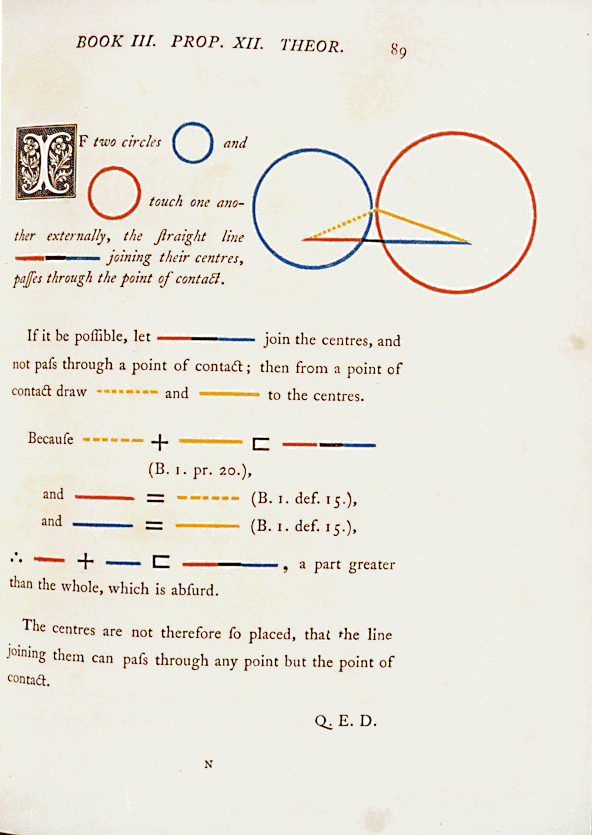 BOOK III. PROP. XII. THEOR. 89
IF two circles and
touch one ano-
ther externally, the ſtraight line
joining their centres,
paſſes through the point of contact.
If it be poſſible, let join the centres, and
not paſs through a point of contact; then from a point of
contact draw and to the centres.
Becauſe + ⊏
(B. 1. pr. 20.),
and = (B. 1. def. 15.),
and = (B. 1. def. 15.),
∴ + ⊏ , a part greater
than the whole, which is abſurd.
The centres are not therefore ſo placed, that the line
joining them can paſs through any point but the point of
contact.
Q. E. D.
N